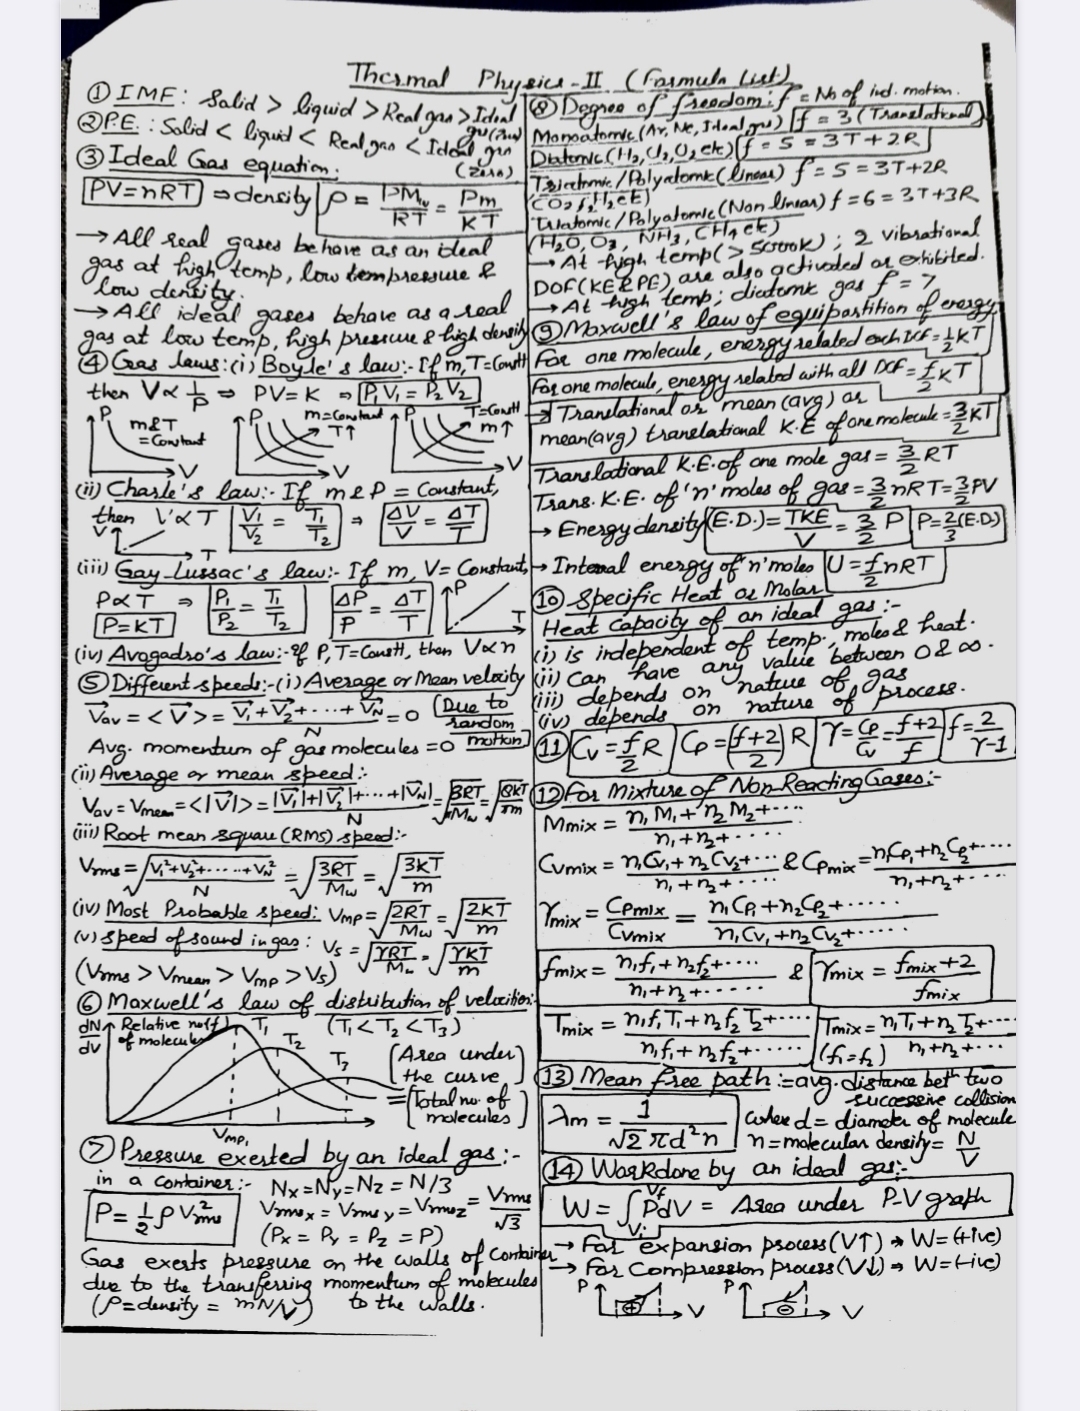 Thermal Physics-II (Formula List)
① IMF: Solid > liquid > Real gas > Ideal gas (zero)
② P.E.: Solid < liquid < Real gas < Ideal gas (zero)
③ Ideal Gas equation:
PV=nRT ⇒ density ρ = PMw/RT = Pm/KT
→ All real gases behave as an ideal
gas at high temp, low pressure &
low density.
→ All ideal gases behave as a real
gas at low temp, high pressure & high density
④ Gas laws: (i) Boyle's law:- If m, T=Constt
then V ∝ 1/P ⇒ PV=K ⇒ P₁V₁ = P₂V₂
P m&T =Constant V
P m=Constant T↑ V
P T=Constt m↑ V
(ii) Charle's law:- If m & P = Constant,
then V ∝ T V₁/V₂ = T₁/T₂ ⇒ ΔV/V = ΔT/T
V T
(iii) Gay-Lussac's law:- If m, V= Constant,
P ∝ T ⇒ P₁/P₂ = T₁/T₂ ΔP/P = ΔT/T P T
P=KT
(iv) Avogadro's law:- If P, T=Constt, then V ∝ n
⑤ Different speeds:-(i) Average or Mean velocity
V⃗av = <V⃗> = (V⃗₁+V⃗₂+....+V⃗N)/N = 0 (Due to random motion)
Avg. momentum of gas molecules =0
(ii) Average or mean speed:-
Vav = Vmean = <|V⃗|> = (|V⃗₁|+|V⃗₂|+...+|V⃗N|)/N = √(8RT/πMw) = √(8KT/πm)
(iii) Root mean square (RMS) speed:-
Vrms = √((V₁²+V₂²+.....+VN²)/N) = √(3RT/Mw) = √(3KT/m)
(iv) Most Probable speed: VMP = √(2RT/Mw) = √(2KT/m)
(v) speed of sound in gas: Vs = √(γRT/Mw) = √(γKT/m)
(Vrms > Vmean > VMP > Vs)
⑥ Maxwell's law of distribution of velocities:-
dN/dv Relative no. of molecules T₁ T₂ T₃ (T₁<T₂<T₃)
(Area under the curve
= Total no. of molecules)
VMP₁
⑦ Pressure exerted by an ideal gas:-
in a container:- Nx=Ny=Nz = N/3
P= 1/3 ρ V²rms Vrmsx = Vrmsy = Vrmsz = Vrms/√3
(Px = Py = Pz = P)
Gas exerts pressure on the walls of container
due to the transferring momentum of molecules
(ρ=density = mN/V) to the walls.
⑧ Degree of freedom: f = No of ind. motion.
Monoatomic (Ar, Ne, Ideal gas) f = 3 (Translational)
Diatomic (H₂, Cl₂, O₂ etc) f = 5 = 3T + 2R
Triatomic/Polyatomic (linear) f = 5 = 3T+2R
(CO₂, C₂H₂ etc)
Triatomic/Polyatomic (Non linear) f = 6 = 3T+3R
(H₂O, O₃, NH₃, CH₄ etc)
→ At high temp (> 5000K); 2 vibrational
DOF (KE & PE) are also activated or exhibited.
→ At high temp; diatomic gas f = 7
⑨ Maxwell's law of equipartition of energy
For one molecule, energy related each DOF = 1/2 KT
For one molecule, energy related with all DOF = f/2 KT
→ Translational or mean (avg) or
mean(avg) translational K.E of one molecule = 3/2 KT
Translational K.E. of one mole gas = 3/2 RT
Trans. K.E. of 'n' moles of gas = 3/2 nRT = 3/2 PV
→ Energy density (E.D.) = TKE/V = 3/2 P P = 2/3 (E.D.)
→ Internal energy of 'n' moles U = f/2 nRT
⑩ Specific Heat or Molar
Heat Capacity of an ideal gas:-
(i) is independent of temp., moles & heat.
(ii) can have any value between 0 & ∞.
(iii) depends on nature of gas
(iv) depends on nature of process.
⑪ Cv = f/2 R Cp = (f+2/2) R γ = Cp/Cv = f+2/f f = 2/γ-1
⑫ For Mixture of Non-Reacting Gases:-
Mmix = (n₁M₁ + n₂M₂+....)/(n₁+n₂+....)
Cvmix = (n₁Cv₁ + n₂Cv₂+...)/(n₁+n₂+....) & Cpmix = (n₁Cp₁+n₂Cp₂+....)/(n₁+n₂+....)
γmix = Cpmix/Cvmix = (n₁Cp₁ + n₂Cp₂+.....)/(n₁Cv₁ + n₂Cv₂+.....)
fmix = (n₁f₁ + n₂f₂+....)/(n₁+n₂+.....) & γmix = (fmix+2)/fmix
Tmix = (n₁f₁T₁ + n₂f₂T₂+....)/(n₁f₁ + n₂f₂+.....) Tmix = (n₁T₁ + n₂T₂+....)/(n₁+n₂+...) (f₁=f₂)
⑬ Mean free path := avg. distance betⁿ two
successive collision
λm = 1/(√2 πd²n) where d = diameter of molecule
n = molecular density = N/V
⑭ Workdone by an ideal gas:-
W = ∫ᵥᵢⱽᶠ PdV = Area under P-V graph
→ For expansion process (V↑) → W=(+ive)
→ For Compression process (V↓) → W=(-ive)
P ⊕ V P ⊖ V